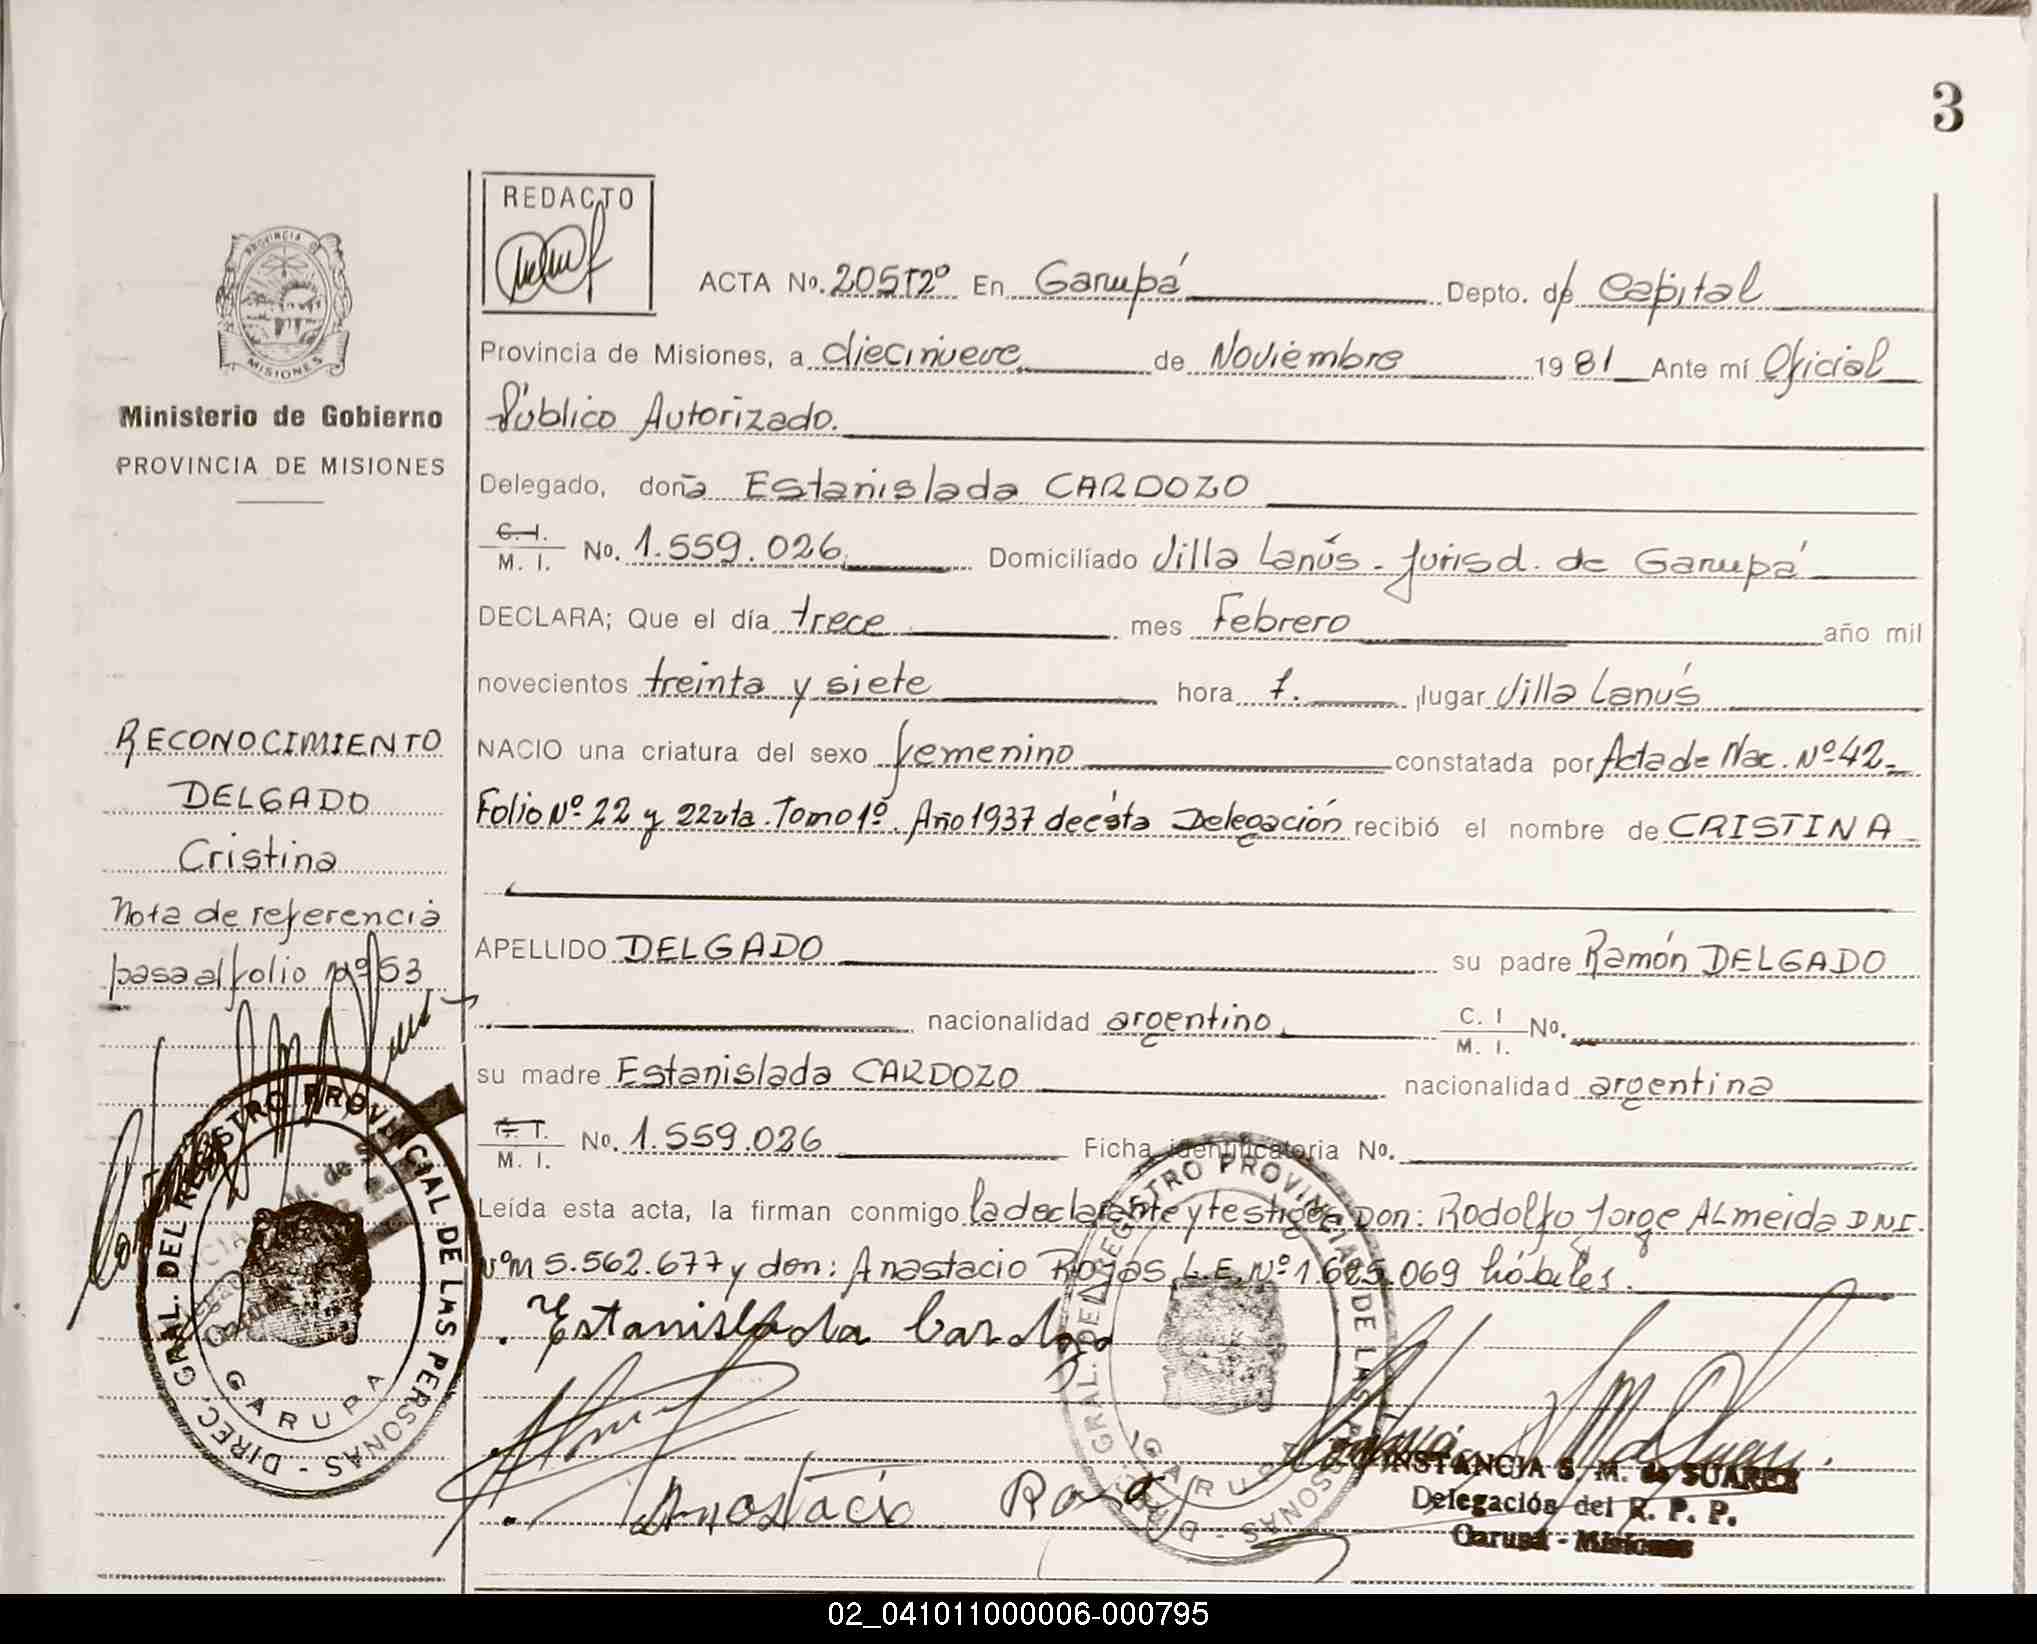 3
REDACTO
ACTA No. 205T2º En Garupá Depto. de Capital
Provincia de Misiones, a diecinueve de Noviembre 1981 Ante mí Oficial
Público Autorizado.
Delegado, doña Estanislada CARDOZO
C. I. M. I. No. 1.559.026 Domiciliado Villa Lanús - Jurisd. de Garupá
DECLARA; Que el día trece mes Febrero año mil
novecientos treinta y siete hora 7. ,lugar Villa Lanús
NACIO una criatura del sexo femenino constatada por Acta de Nac. Nº 42-
Folio Nº 22 y 22vta. Tomo 1º. Año 1937 de ésta Delegación recibió el nombre de CRISTINA
APELLIDO DELGADO su padre Ramón DELGADO
nacionalidad argentino C. I M. I. No.
su madre Estanislada CARDOZO nacionalidad argentina
M. I. No. 1.559.026 Ficha identificatoria No.
Leída esta acta, la firman conmigo la declarante y testigos Don: Rodolfo Jorge ALmeida DNI.
NºM 5.562.677 y don: Anastacio Rojas L.E. Nº 1.625.069 hábiles.
Estanislada Cardozo
Anastacio Rojas
CONSTANCIA S. M. de SUAREZ
Delegación del R. P. P.
Garupá - Misiones
DIREC. GRAL. DEL REGISTRO PROVINCIAL DE LAS PERSONAS -
GARUPA
PROVINCIA D
MISIONES
Ministerio de Gobierno
PROVINCIA DE MISIONES
RECONOCIMIENTO
DELGADO
Cristina
Nota de referencia
pasa al folio nº 53
DIREC. GRAL. DEL REGISTRO PROVINCIAL DE LAS PERSONAS -
GARUPA
02_041011000006-000795